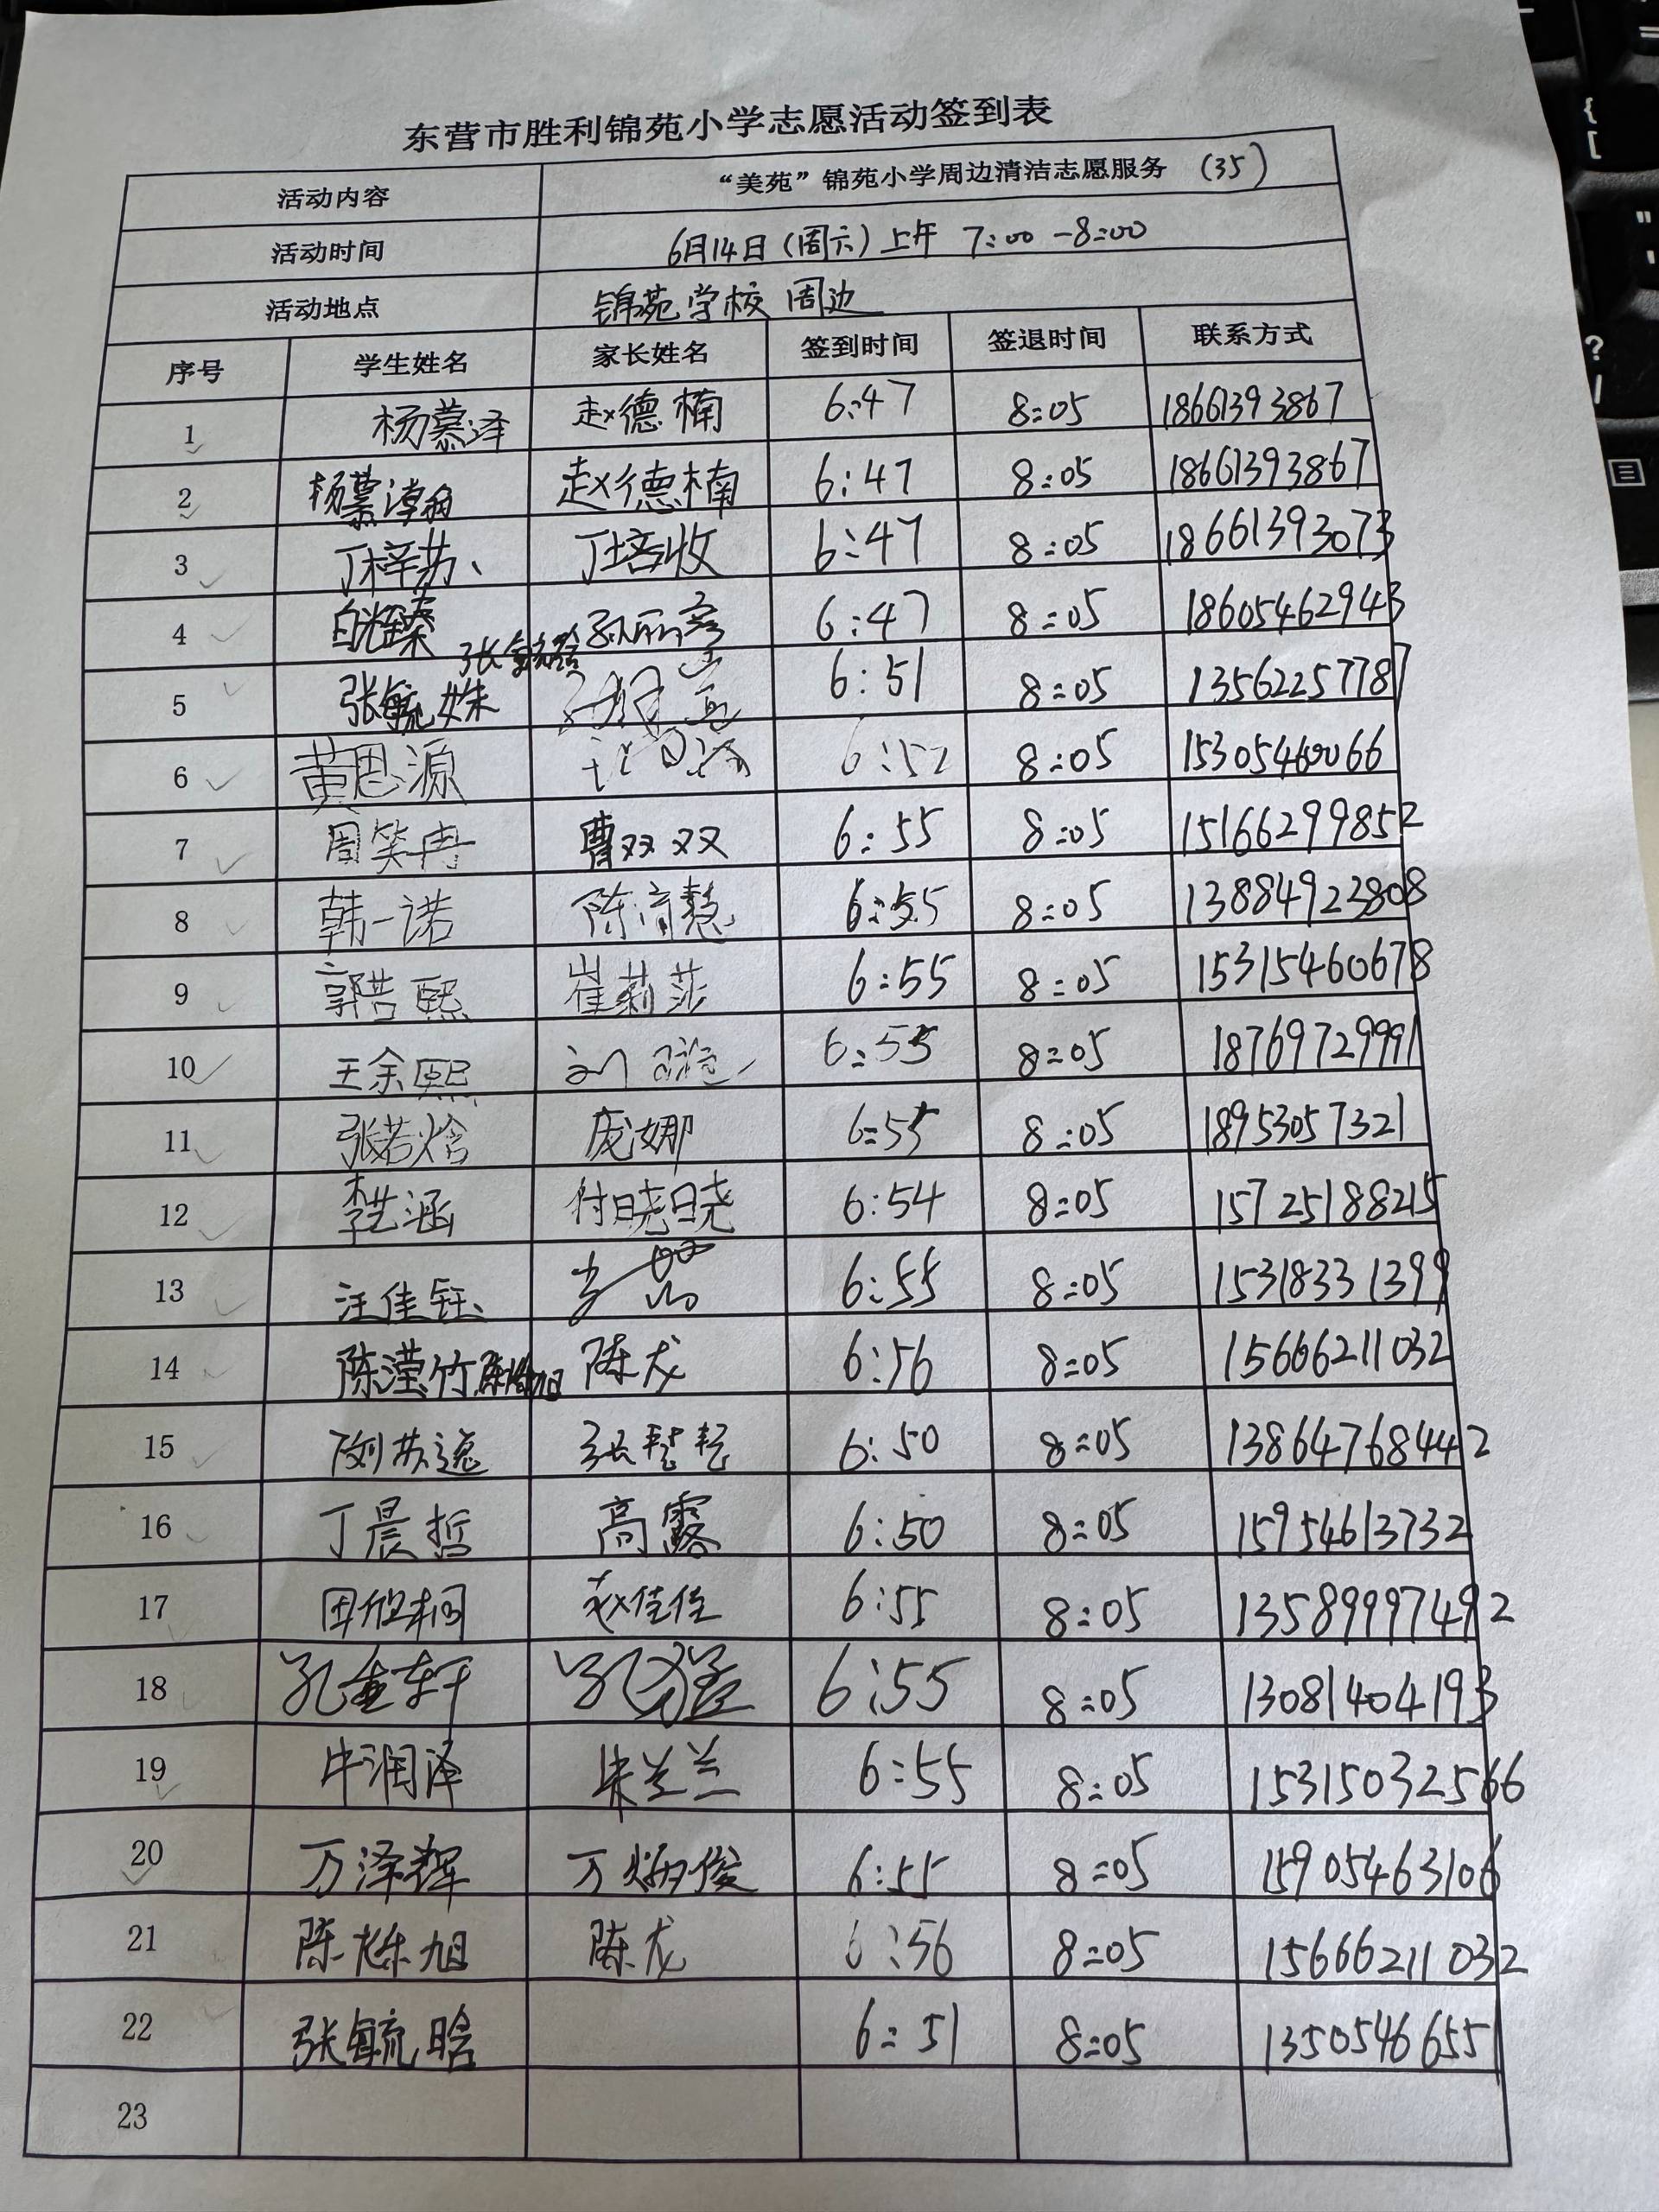 东营市胜利锦苑小学志愿活动签到表
活动内容 “美苑”锦苑小学周边清洁志愿服务 (35)
活动时间 6月14日(周六)上午 7:00-8:00
活动地点 锦苑学校周边
序号 学生姓名 家长姓名 签到时间 签退时间 联系方式
1 杨慕泽 赵德楠 6:47 8:05 18661393867
2 赵德楠 6:47 8:05 18661393867
3 丁梓苏、 丁培收 6:47 8:05 18661393073
4 6:47 8:05 18605462943
5 张毓姝 6:51 8:05 13562257787
6 黄思源 6:52 8:05 15305460066
7 周笑冉 曹双双 6:55 8:05 15166299852
8 韩一诺 陈清慧 6:55 8:05 13884922808
9 郭浩熙 崔莉莎 6:55 8:05 15315460678
10 王余熙 6:55 8:05 18769729991
11 张若焓 庞娜 6:55 8:05 18953057321
12 李艺涵 付晓晓 6:54 8:05 15725188215
13 汪佳钰 6:55 8:05 15318331399
14 陈滢竹 陈龙 6:56 8:05 15666211032
15 6:50 8:05 13864768442
16 丁晨哲 高露 6:50 8:05 15954613732
17 田欣桐 赵佳佳 6:55 8:05 13589997492
18 孔金轩 孔猛 6:55 8:05 13081404193
19 牛润泽 朱兰兰 6:55 8:05 15315032566
20 万泽辉 万炳俊 6:55 8:05 15905463106
21 陈烁旭 陈龙 6:56 8:05 15666211032
22 张毓晗 6:51 8:05 13505466551
23